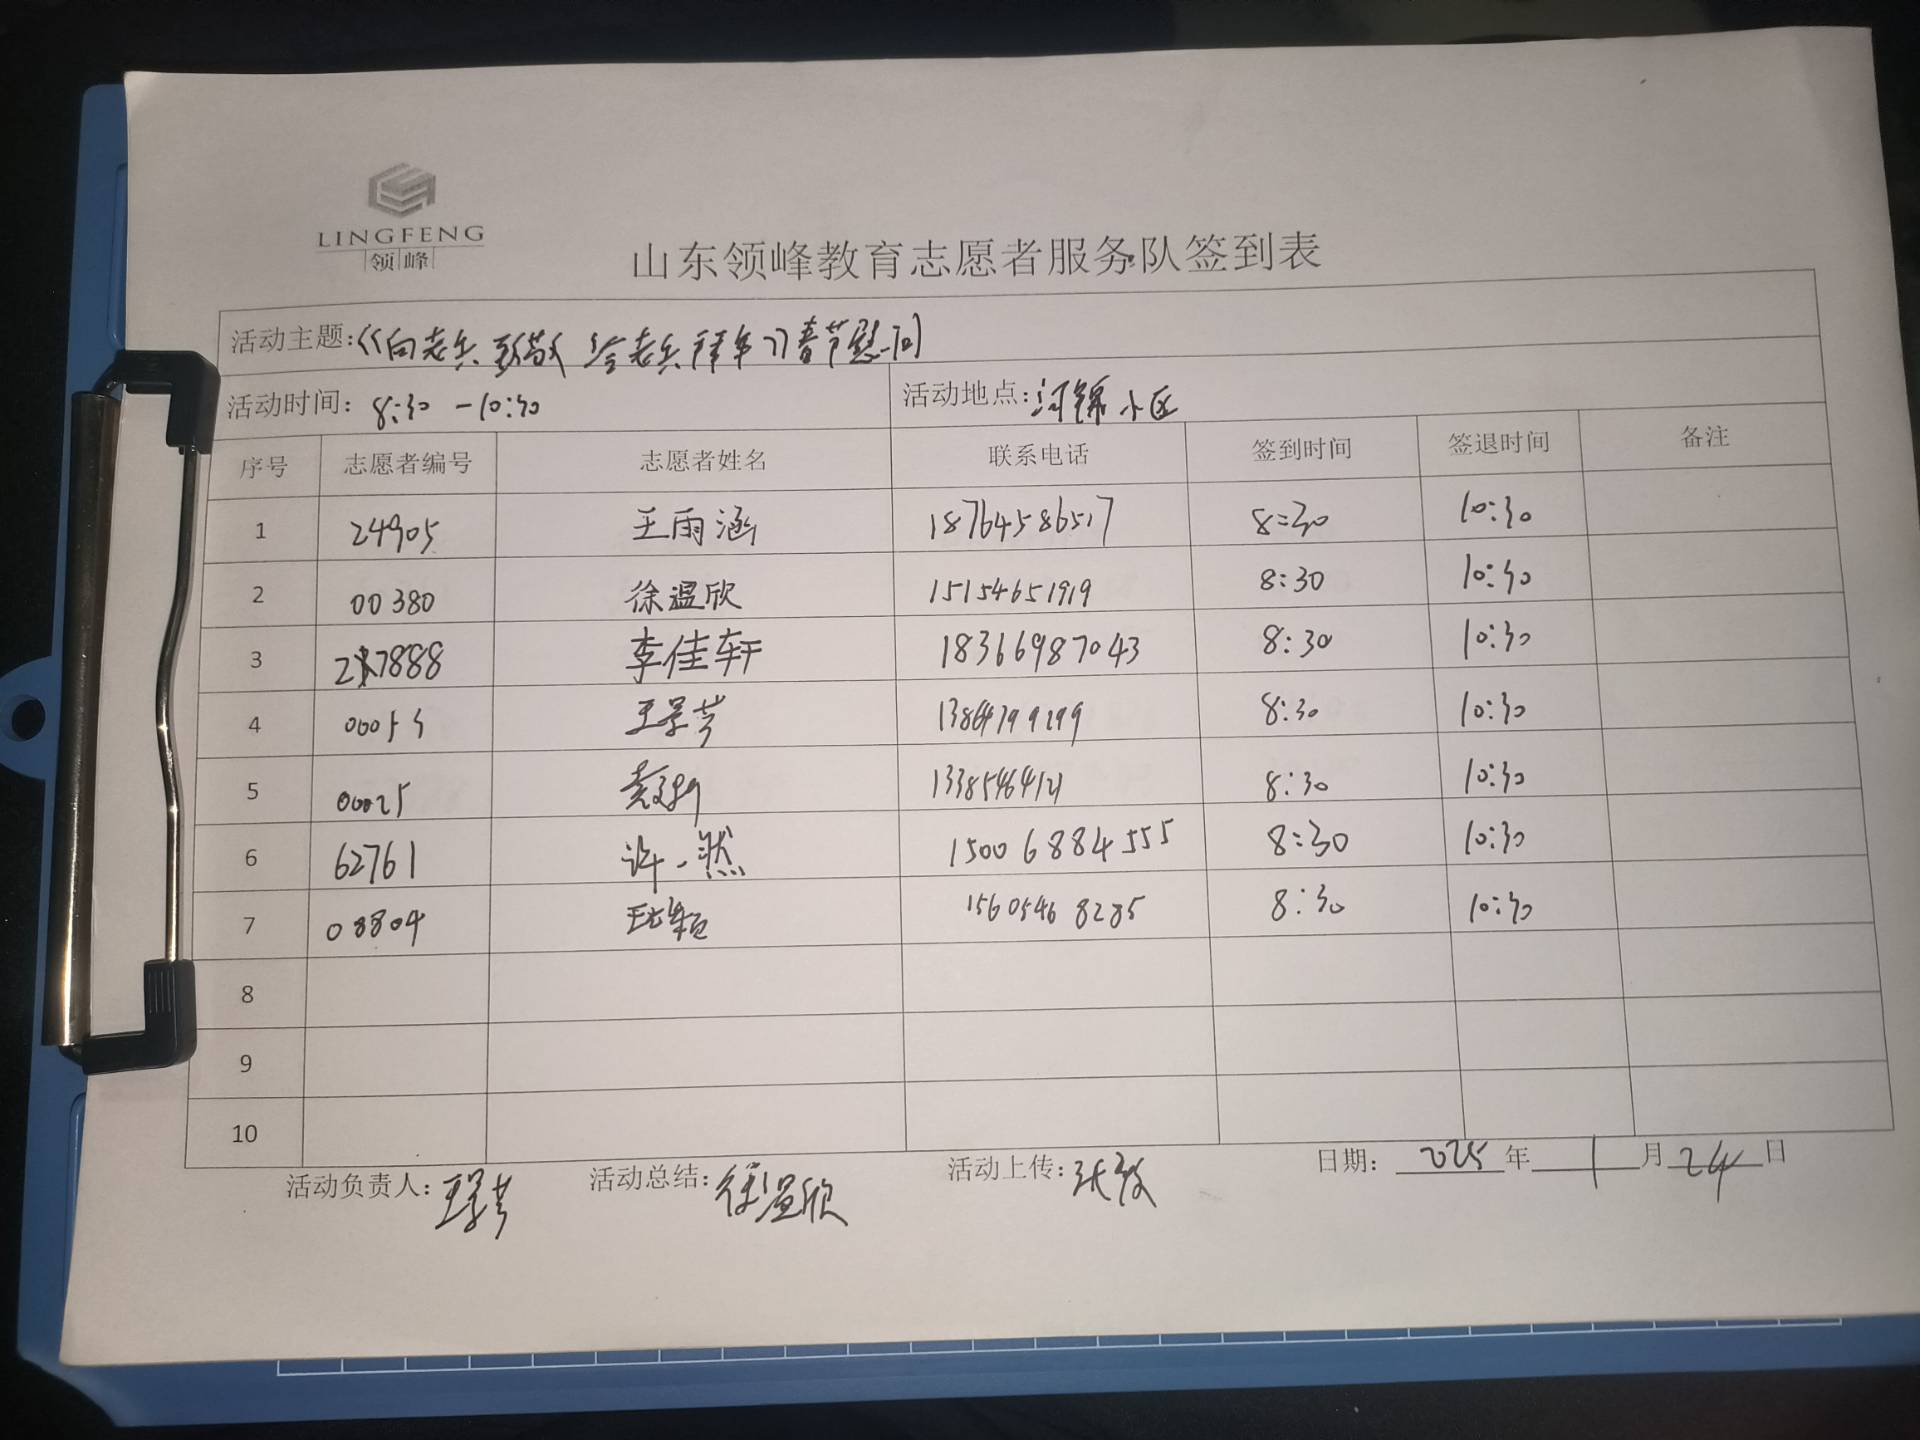 LINGFENG
领峰
山东领峰教育志愿者服务队签到表
活动主题:《向老兵致敬 给老兵拜年》春节慰问
活动时间: 8:30 -10:30 活动地点: 锦小区
序号 志愿者编号 志愿者姓名 联系电话 签到时间 签退时间 备注
1 24905 王雨涵 18764586517 8:30 10:30
2 00380 徐温欣 15154651919 8:30 10:30
3 李佳轩 18366987043 8:30 10:30
4 王景芳 8:30 10:30
5 00025 8:30 10:30
6 62761 许一然 15006884555 8:30 10:30
7 08804 15605468285 8:30 10:30
8
9
10
活动负责人: 王景芳 活动总结: 徐温欣 活动上传: 张 日期: 2025年1月24日